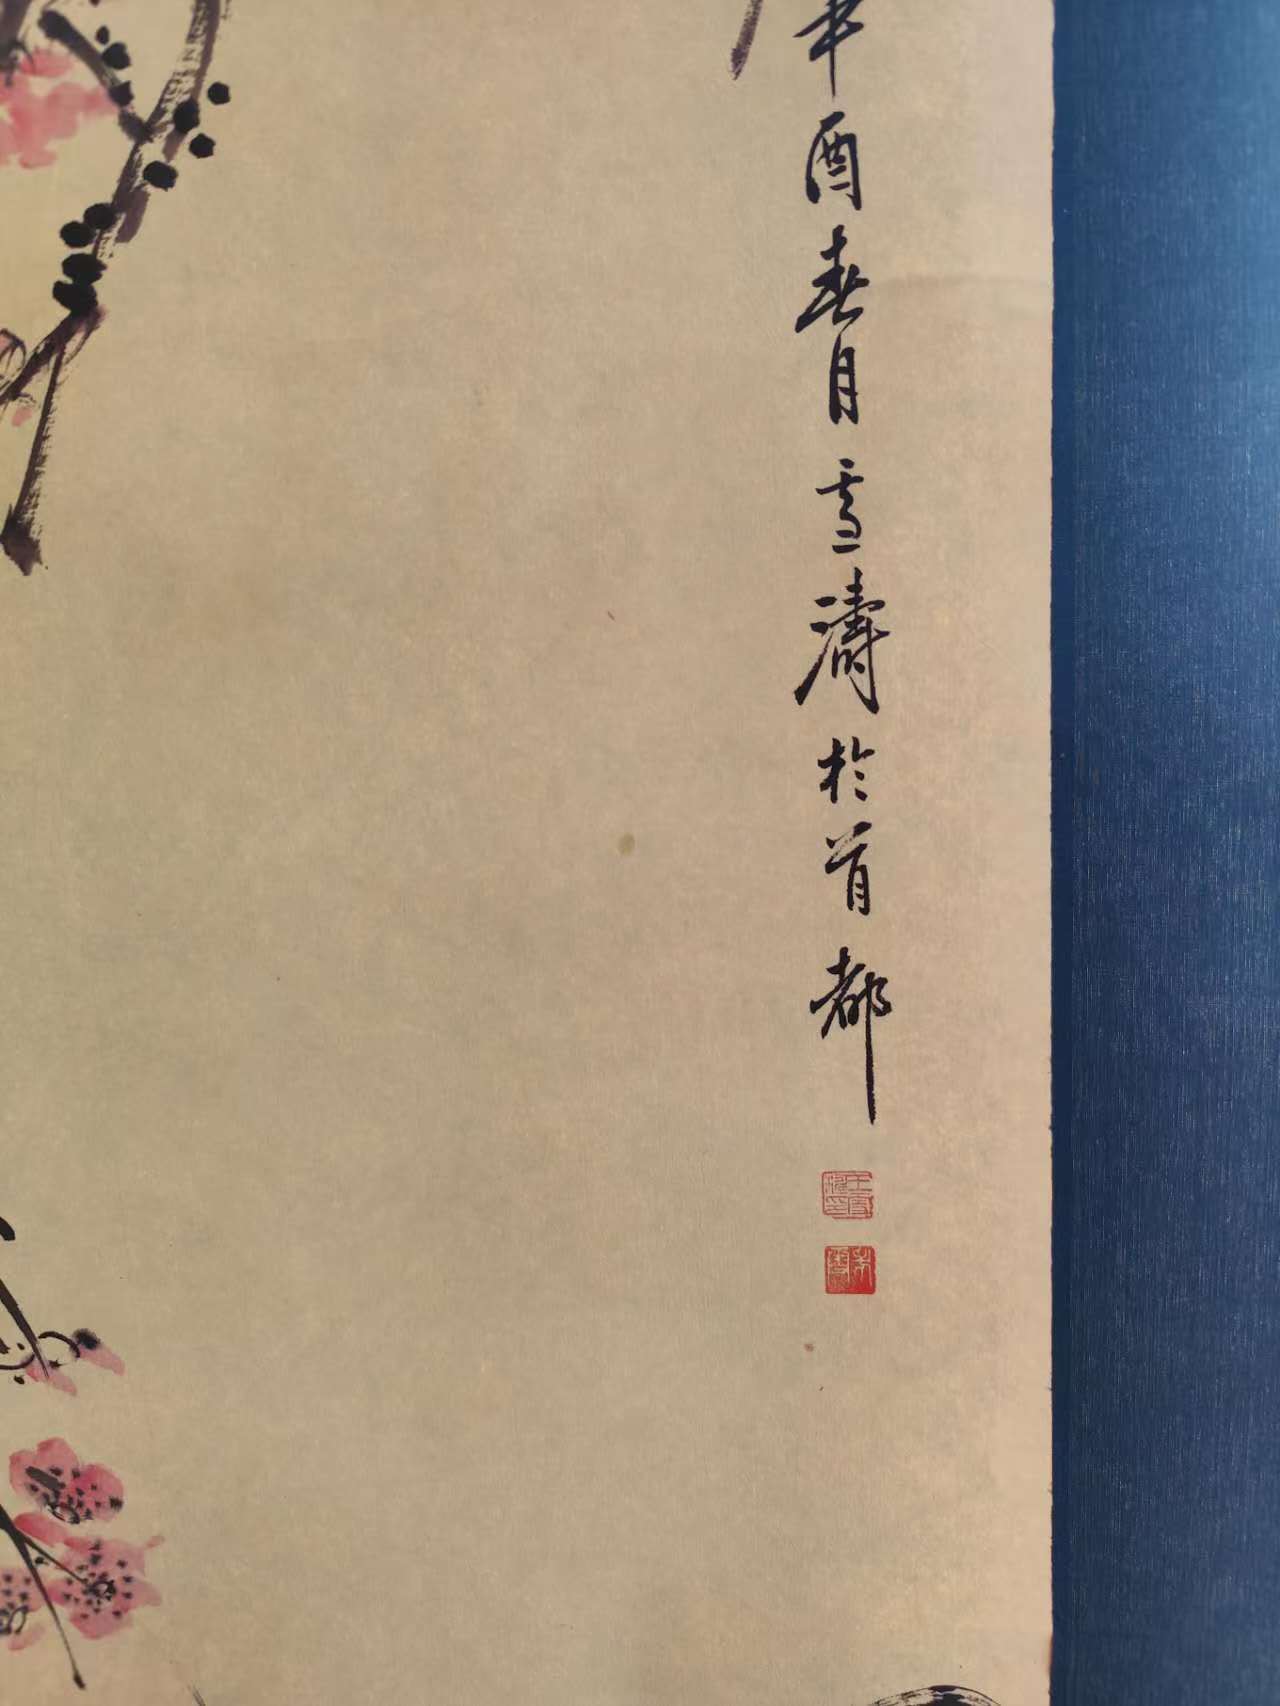 辛酉春月雪濤於首都